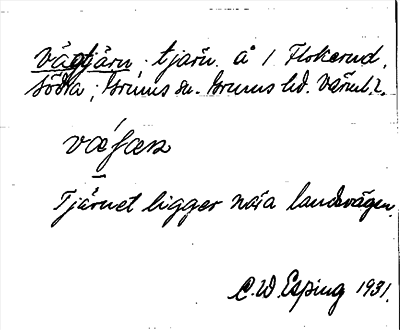 Vägtjärn. tjärn. å 1 Flokerud,
Södra; Grums sn. Grums hd. Värml.
Tjärnet ligger nära landsvägen.
C.W. Esping 1931.